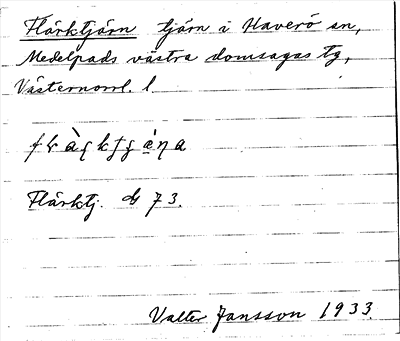 Flärktjärn tjärn i Haverö sn,
Medelpads västra domsagas tg,
Västernorrl. l.
Flärktj. dg 73.
Valter Jansson 1933.